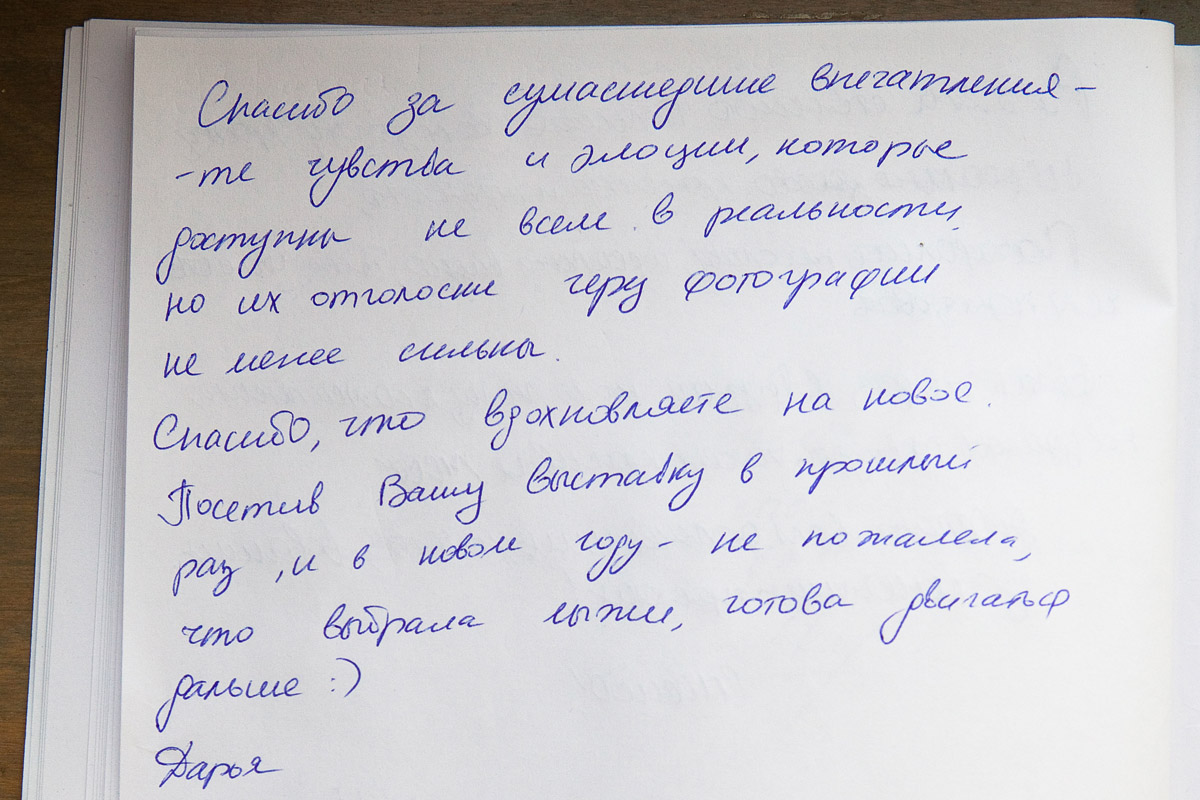 Спасибо за сумасшедшие впечатления -
- те чувства и эмоции, которые
доступны не всем в реальности,
но их отголоски через фотографии
не менее сильны.
Спасибо, что вдохновляете на новое.
Посетив Вашу выставку в прошлый
раз, и в новом году - не пожалела,
что выбрала лыжи, готова двигаться
дальше :)
Дарья